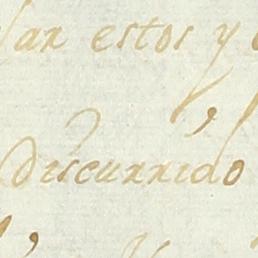 lar estos y
discurrido